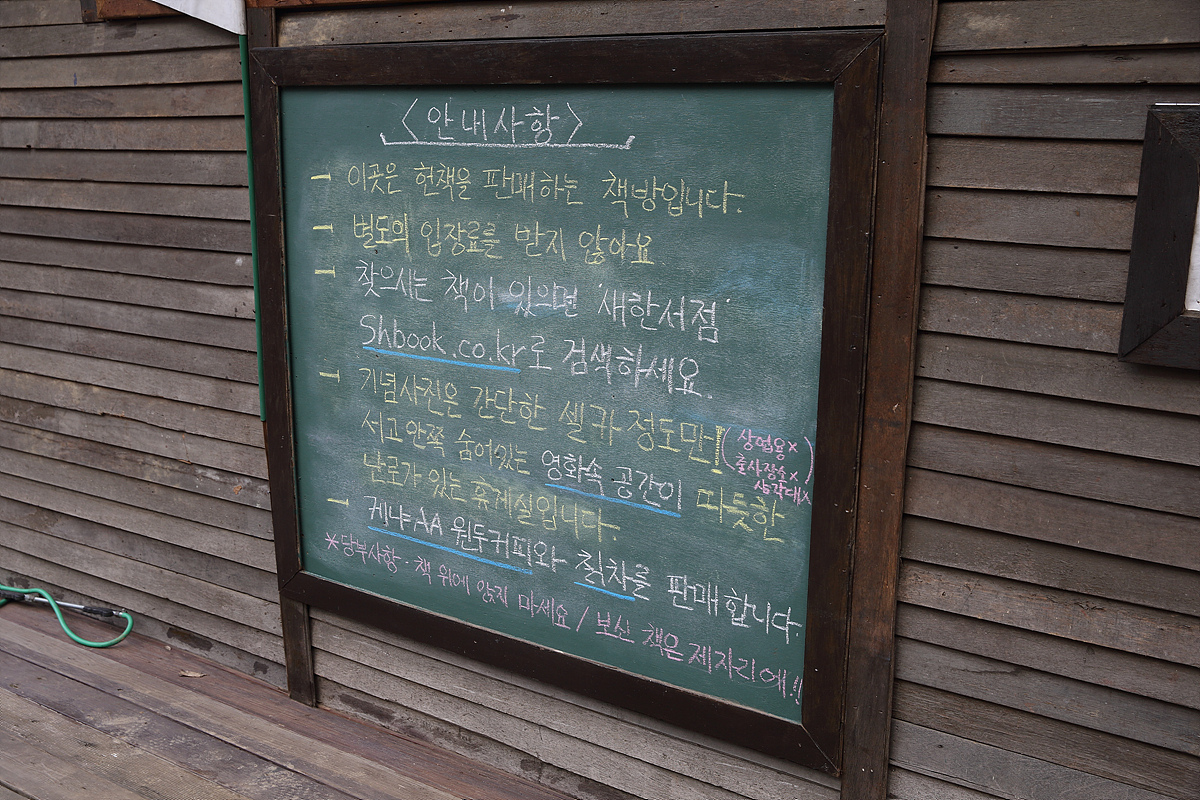 <안내사항>
- 이곳은 헌책을 판매하는 책방입니다.
- 별도의 입장료를 받지 않아요.
- 찾으시는 책이 있으면 '새한서점'
Shbook.co.kr로 검색하세요.
- 기념사진은 간단한 셀카 정도만!
(상업용x
출사장소x
생각대x)
서고 안쪽 숨어있는 영화속 공간이 따듯한
난로가 있는 휴게실입니다.
- 케냐AA 원두커피와 칡차를 판매합니다.
*당부사항: 책 위에 앉지 마세요 / 보신 책은 제자리에!!